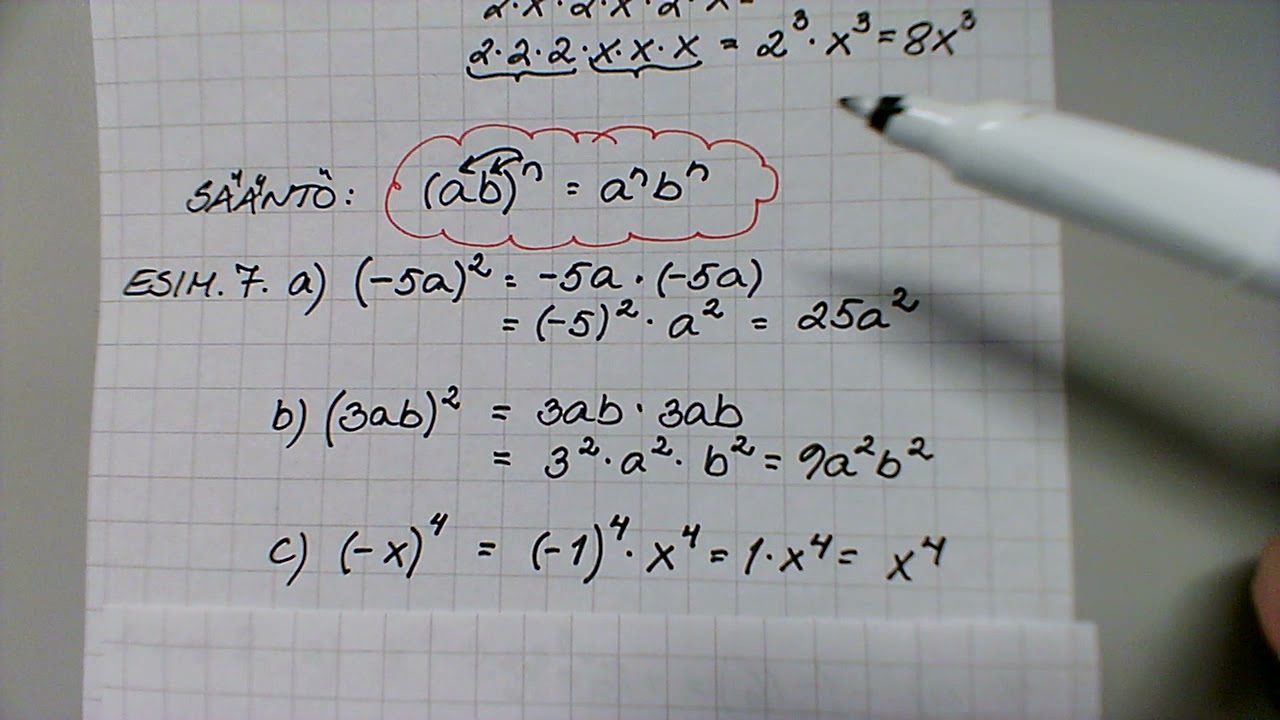 2·x·2·x·2·x=
2·2·2·x·x·x = 2³·x³ = 8x³
SÄÄNTÖ: (ab)ⁿ = aⁿbⁿ
ESIM. 7. a) (-5a)² = -5a·(-5a)
= (-5)²·a² = 25a²
b) (3ab)² = 3ab·3ab
= 3²·a²·b² = 9a²b²
c) (-x)⁴ = (-1)⁴·x⁴ = 1·x⁴ = x⁴